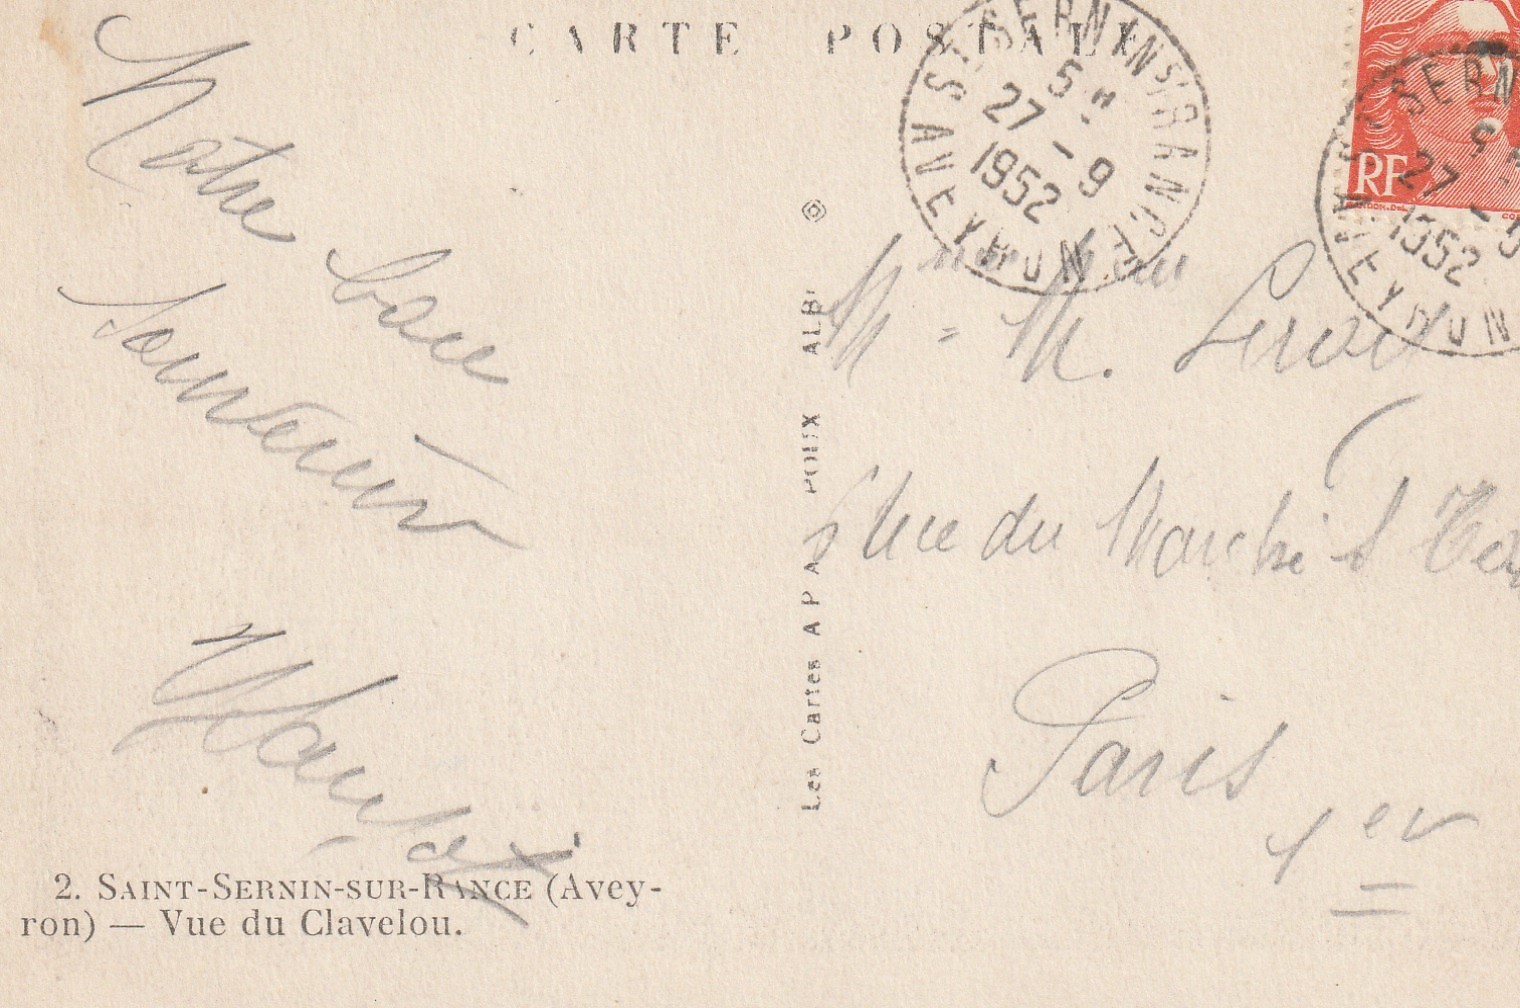 CARTE POSTALE
ST SERNIN S' RANCE
5 H
27 - 9
1952
AVEYRON
RF
ST SERN
27 -
1952
AVEYRON
Notre bon
souvenir
Les Cartes A P A POUX ALBI
M = M. Leroi
rue du Marché St
Paris
1er
2. SAINT-SERNIN-SUR-RANCE (Avey-
ron) — Vue du Clavelou.